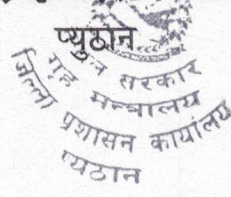 प्युठान
सरकार
गृह मन्त्रालय
जिल्ला प्रशासन कार्यालय
प्यूठान